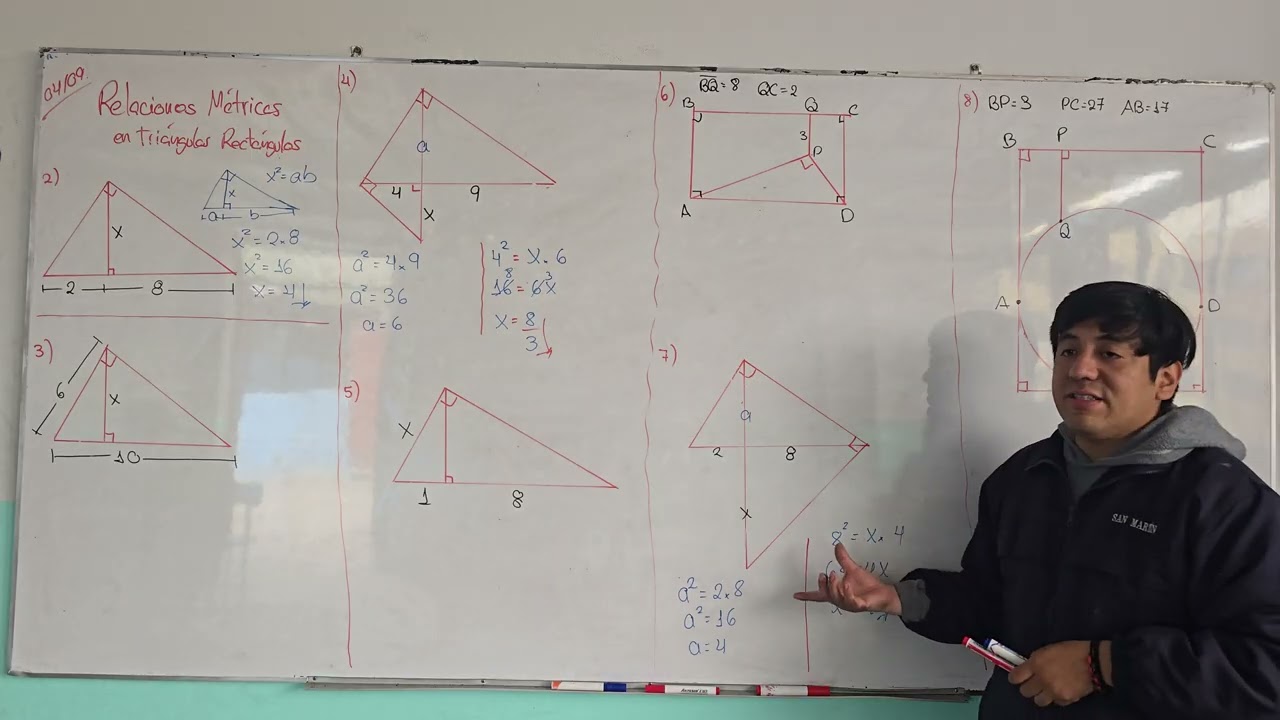 04/09
Relaciones Métricas
en Triángulos Rectángulos
2)
x
2
8
x
a
b
x² = ab
x² = 2.8
x² = 16
x = 4
3)
6
x
10
4)
a
4
9
x
a² = 4x9
a² = 36
a = 6
4² = x.6
8 3
16 = 6x
x = 8
3
5)
x
1
8
6)
BQ = 8 QC = 2
B Q C
3
P
A D
7)
a
2
8
x
a² = 2x8
a² = 16
a = 4
8² = x.4
8) BP = 3 PC = 27 AB = 17
B P C
Q
A D
SAN MARTÍN